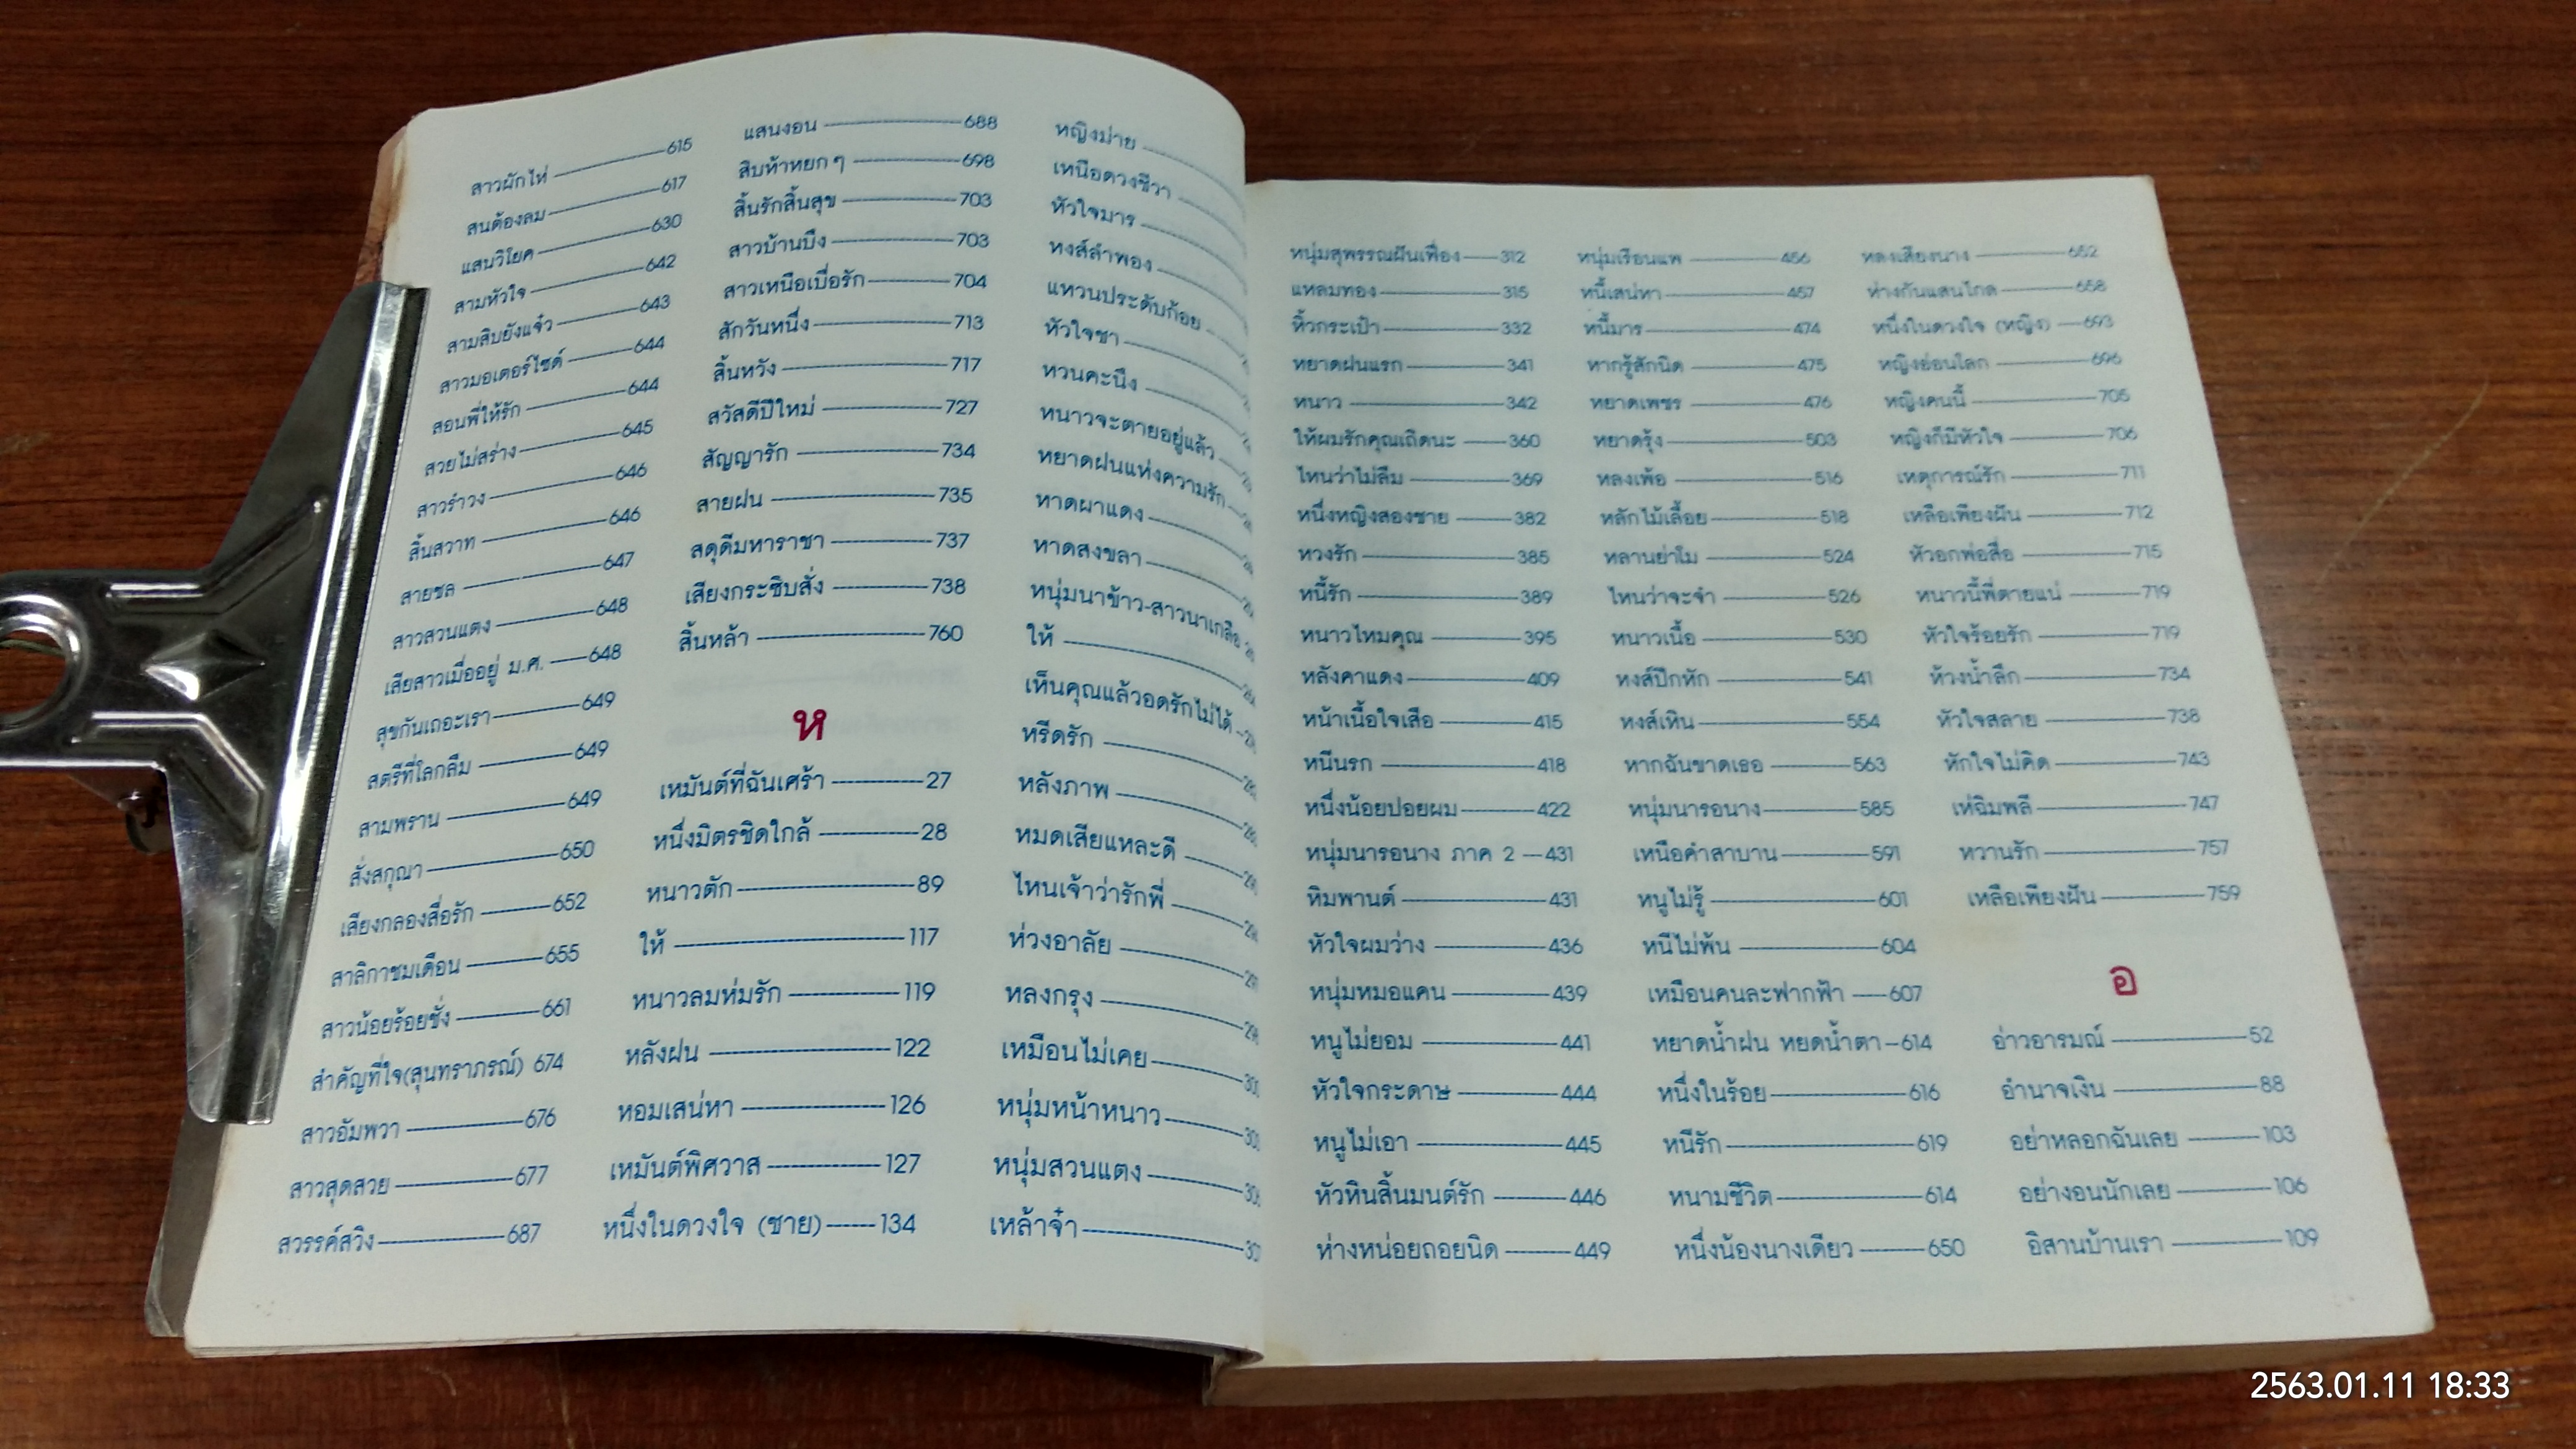 สาวผักไห่ 615
สนต้องลม 617
แสนวิโยค 630
สามหัวใจ 642
สามสิบยังแจ๋ว 643
สาวมอเตอร์ไซด์ 644
สอนพี่ให้รัก 644
สวยไม่สร่าง 645
สาวรำวง 646
สิ้นสวาท 646
สายชล 647
สาวสวนแตง 648
เสียสาวเมื่ออยู่ ม.ศ. 648
สุขกันเถอะเรา 649
สตรีที่โลกลืม 649
สามพราน 649
สั่งสกุณา 650
เสียงกลองสื่อรัก 652
สาลิกาชมเดือน 655
สาวน้อยร้อยชั่ง 661
สำคัญที่ใจ(สุนทราภรณ์) 674
สาวอัมพวา 676
สาวสุดสวย 677
สวรรค์สวิง 687
แสนงอน 688
สิบห้าหยก ๆ 698
สิ้นรักสิ้นสุข 703
สาวบ้านบึง 703
สาวเหนือเบื่อรัก 704
สักวันหนึ่ง 713
สิ้นหวัง 717
สวัสดีปีใหม่ 727
สัญญารัก 734
สายฝน 735
สดุดีมหาราชา 737
เสียงกระซิบสั่ง 738
สิ้นหล้า 760
ห
เหมันต์ที่ฉันเศร้า 27
หนึ่งมิตรชิดใกล้ 28
หนาวตัก 89
ให้ 117
หนาวลมห่มรัก 119
หลังฝน 122
หอมเสน่หา 126
เหมันต์พิศวาส 127
หนึ่งในดวงใจ (ชาย) 134
หญิงม่าย
เหนือดวงชีวา
หัวใจมาร
หงส์ลำพอง
แหวนประดับก้อย
หัวใจชา
หวนคะนึง
หนาวจะตายอยู่แล้ว
หยาดฝนแห่งความรัก
หาดผาแดง
หาดสงขลา
หนุ่มนาข้าว-สาวนาเกลือ
ให้
เห็นคุณแล้วอดรักไม่ได้
หรีดรัก
หลังภาพ
หมดเสียแหละดี
ไหนเจ้าว่ารักพี่
ห่วงอาลัย
หลงกรุง
เหมือนไม่เคย
หนุ่มหน้าหนาว
หนุ่มสวนแตง
เหล้าจ๋า
หนุ่มสุพรรณฝันเฟื่อง 312
แหลมทอง 315
หิ้วกระเป๋า 332
หยาดฝนแรก 341
หนาว 342
ให้ผมรักคุณเถิดนะ 360
ไหนว่าไม่ลืม 369
หนึ่งหญิงสองชาย 382
หวงรัก 385
หนี้รัก 389
หนาวไหมคุณ 395
หลังคาแดง 409
หน้าเนื้อใจเสือ 415
หนีนรก 418
หนึ่งน้อยปอยผม 422
หนุ่มนารอนาง ภาค 2 431
หิมพานต์ 431
หัวใจผมว่าง 436
หนุ่มหมอแคน 439
หนูไม่ยอม 441
หัวใจกระดาษ 444
หนูไม่เอา 445
หัวหินสิ้นมนต์รัก 446
ห่างหน่อยถอยนิด 449
หนุ่มเรือนแพ 456
หนี้เสน่หา 457
หนี้มาร 474
หากรู้สักนิด 475
หยาดเพชร 476
หยาดรุ้ง 503
หลงเพ้อ 516
หลักไม้เลื้อย 518
หลานย่าโม 524
ไหนว่าจะจำ 526
หนาวเนื้อ 530
หงส์ปีกหัก 541
หงส์เหิน 554
หากฉันขาดเธอ 563
หนุ่มนารอนาง 585
เหนือคำสาบาน 591
หนูไม่รู้ 601
หนีไม่พ้น 604
เหมือนคนละฟากฟ้า 607
หยาดน้ำฝน หยดน้ำตา 614
หนึ่งในร้อย 616
หนีรัก 619
หนามชีวิต 614
หนึ่งน้องนางเดียว 650
หลงเสียงนาง 652
ห่างกันแสนไกล 658
หนึ่งในดวงใจ (หญิง) 693
หญิงอ่อนโลก 696
หญิงคนนี้ 705
หญิงก็มีหัวใจ 706
เหตุการณ์รัก 711
เหลือเพียงฝัน 712
หัวอกพ่อสื่อ 715
หนาวนี้พี่ตายแน่ 719
หัวใจร้อยรัก 719
ห้วงน้ำลึก 734
หัวใจสลาย 738
หักใจไม่คิด 743
เห่ฉิมพลี 747
หวานรัก 757
เหลือเพียงฝัน 759
อ
อ่าวอารมณ์ 52
อำนาจเงิน 88
อย่าหลอกฉันเลย 103
อย่างอนนักเลย 106
อิสานบ้านเรา 109
2563.01.11 18:33